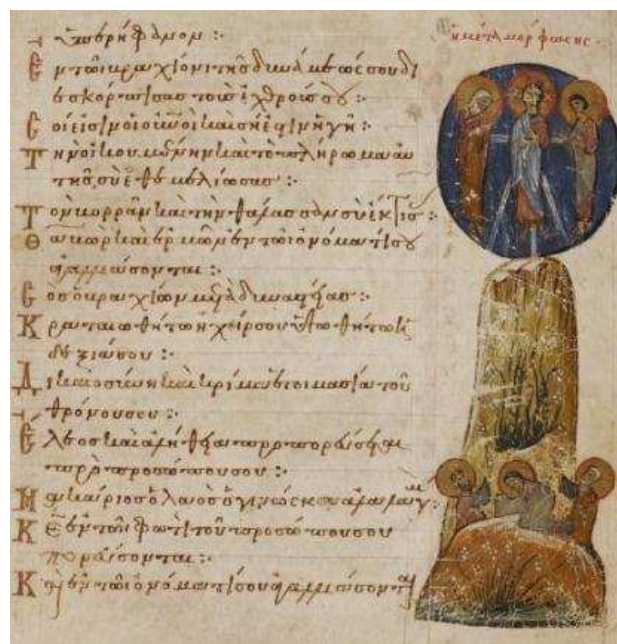 ἡ μεταμόρφωσης·
ὑπερήφανον :·
Ἐν τῶι βραχίονι τῆς δυνάμεώς σου δι
εσκόρπισας τοὺς ἐχθρούς σου :·
Σοί εἰσιν οἱ οὐνοὶ καὶ σή ἐστιν ἡ γῆ :·
Τὴν οἰκουμένην καὶ τὸ πλήρωμα αὐ
τῆς σὺ ἐθεμελίωσας :·
Τὸν βορρᾶν καὶ τὴν θάλασσαν σὺ ἔκτισ :·
Θαβὼρ καὶ ἑρμὼν ἐν τῶι ὀνόματί σου
ἀγαλλιάσονται :·
Σὸς ὁ βραχίων μετὰ δυναστείας :·
Κραταιωθήτω ἡ χείρ σου ὑψωθήτω ἡ
δεξιά σου :·
Δικαιοσύνη καὶ κρίμα ἑτοιμασία τοῦ
θρόνου σου :·
Ἔλεος καὶ ἀλήθεια προπορεύσεται
πρὸ προσώπου σου :·
Μακάριος ὁ λαὸς ὁ γινώσκων ἀλαλαγμ :·
Κε ἐν τῶι φωτὶ τοῦ προσώπου σου
πορεύσονται :·
Καὶ ἐν τῶι ὀνόματί σου ἀγαλλιάσονται